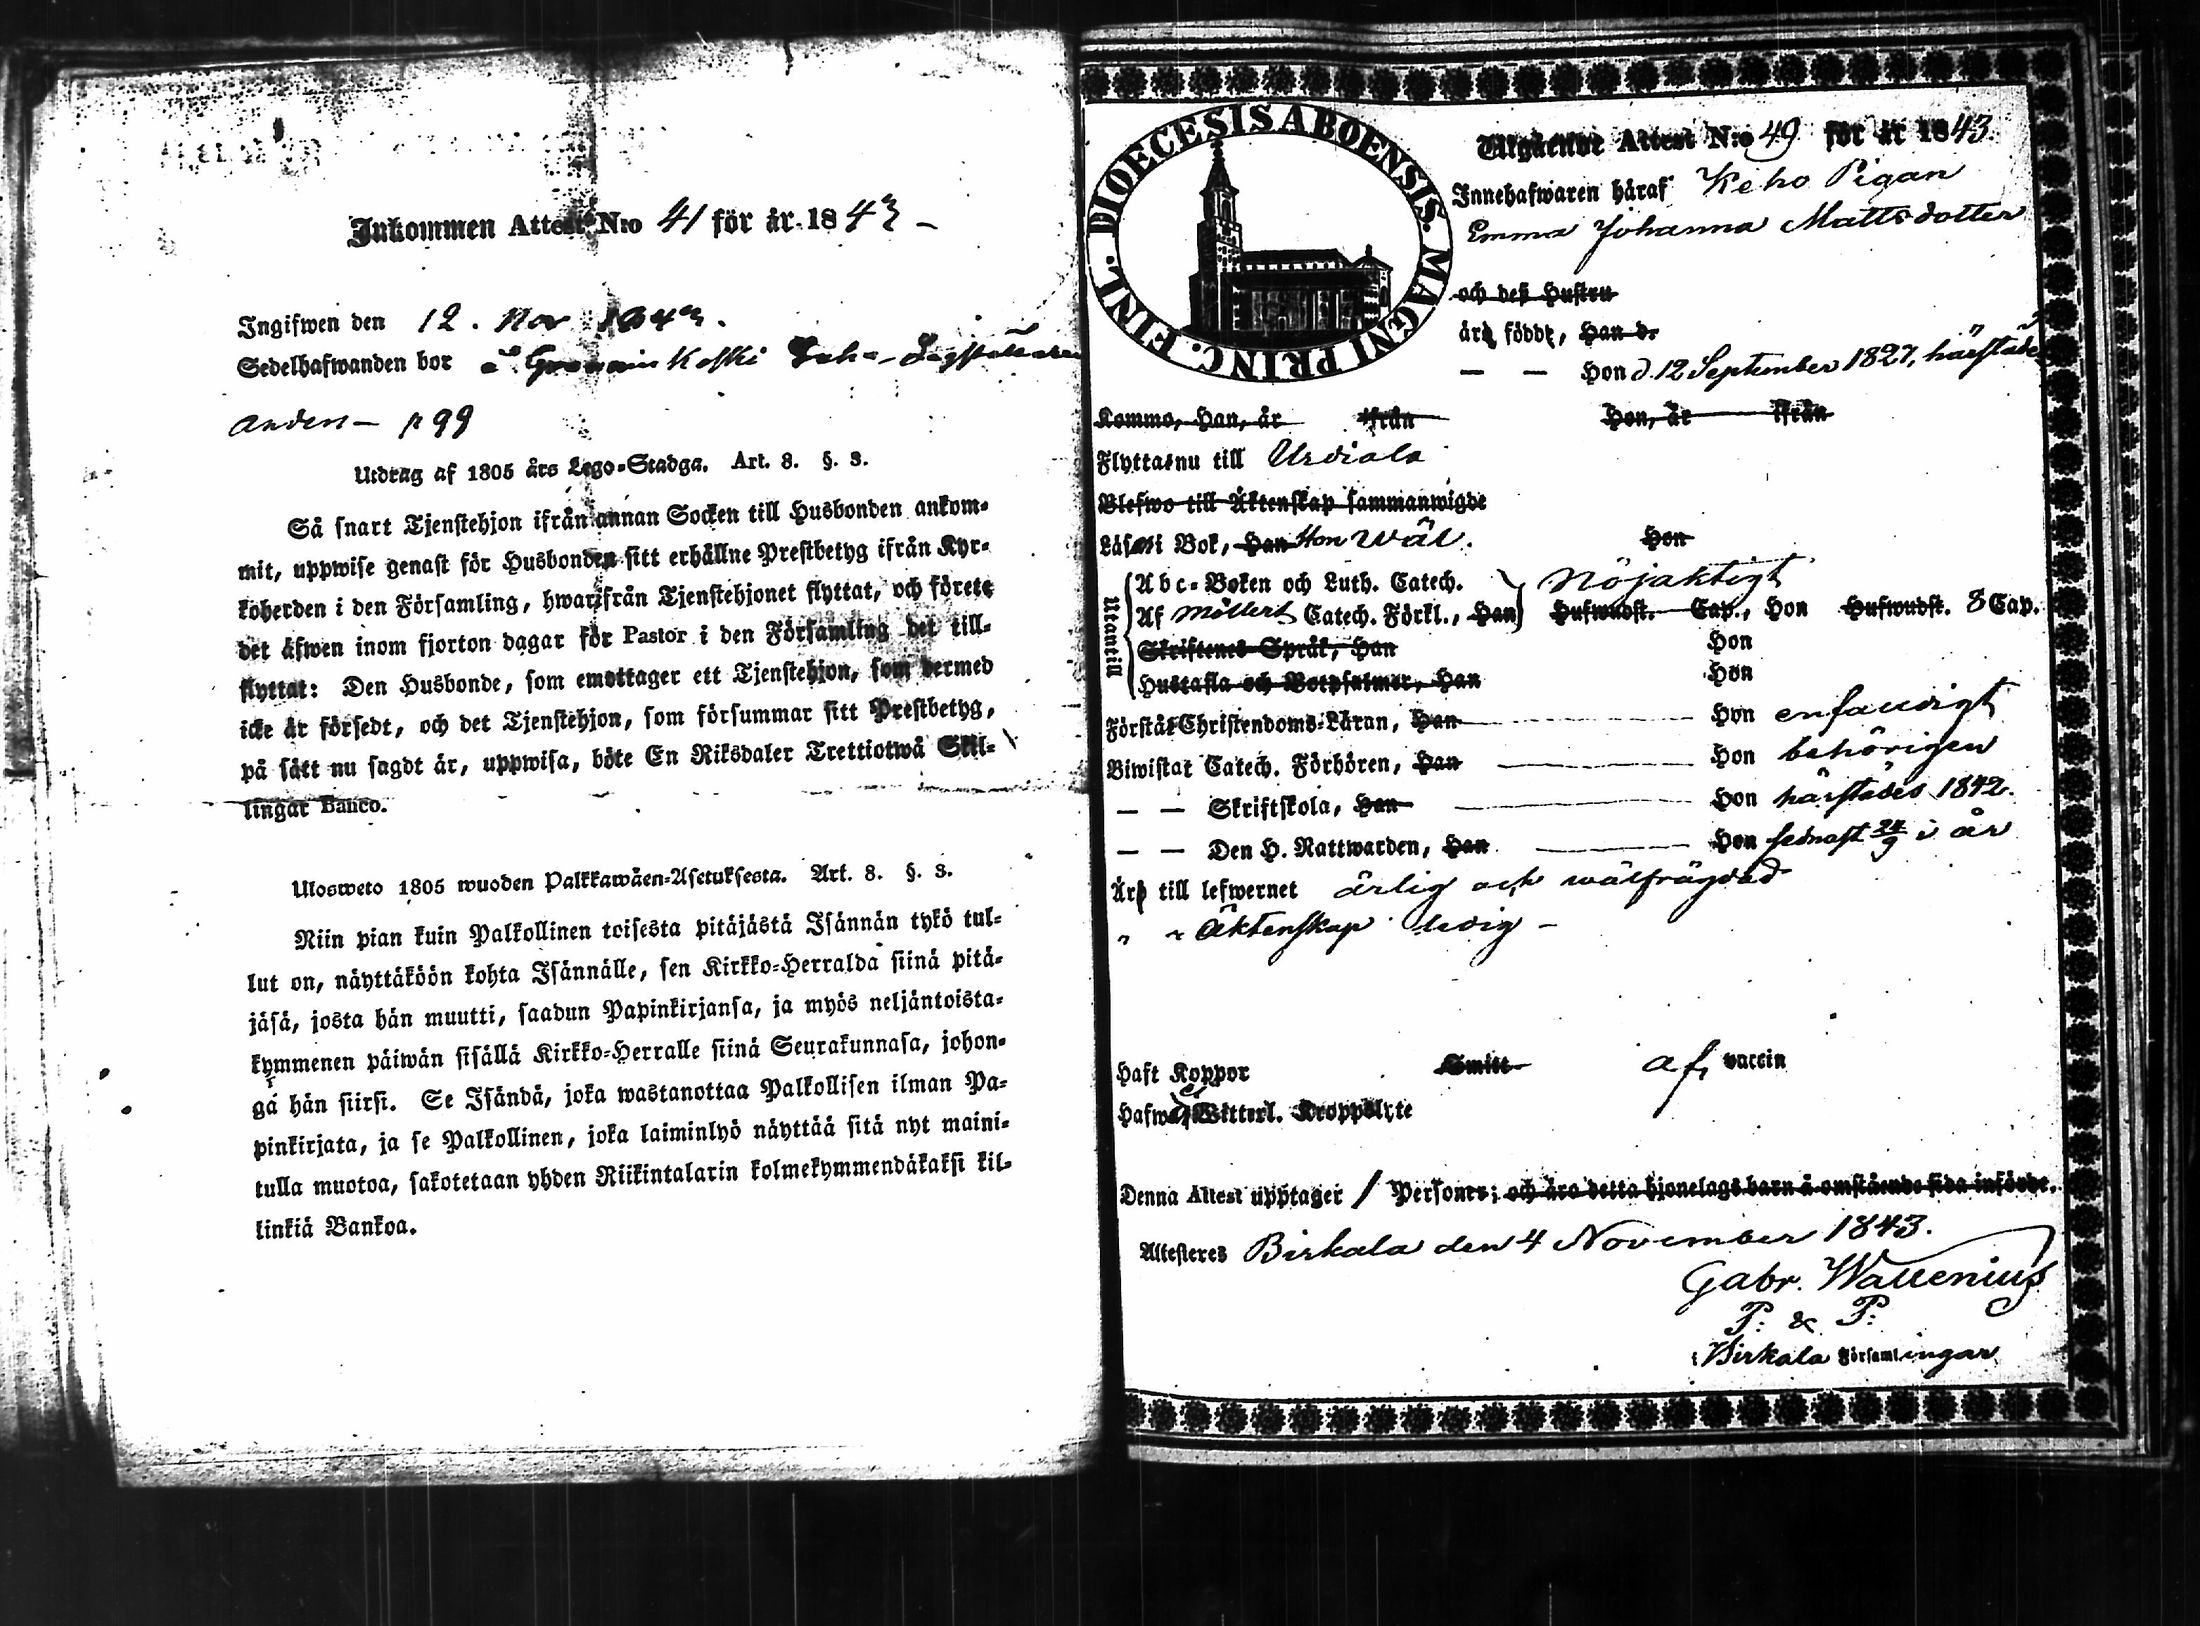 Inkommen Attest N:o 41 för år 1843 –
Ingifwen den 12. Nov 1843.
Sedelhafwanden bor å
anden – p 99
Utdrag af 1805 års Lego-Stadga. Art. 8. §. 3.
Så snart Tjenstehjon ifrån annan Socken till Husbonden ankom-
mit, uppwise genast för Husbonden sitt erhållne Prestbetyg ifrån Kyr-
koherden i den Församling, hwarifrån Tjenstehjonet flyttat, och förete
det äfwen inom fjorton dagar för Pastor i den Församling det till-
flyttat: Den Husbonde, som emottager ett Tjenstehjon, som dermed
icke är försedt, och det Tjenstehjon, som försummar sitt Prestbetyg,
på sätt nu sagdt är, uppwisa, böte En Riksdaler Trettiotwå Skil-
lingar Banco.
Ulosweto 1805 wuoden Palkkawäen-Asetuksesta. Art. 8. §. 3.
Niin pian kuin Palkollinen toisesta pitäjästä Isännän tykö tul-
lut on, näyttäköön kohta Isännälle, sen Kirkko-Herralda siinä pitä-
jäsä, josta hän muutti, saadun Papinkirjansa, ja myös neljäntoista-
kymmenen päiwän sisällä Kirkko-Herralle siinä Seurakunnasa, johon-
gá hän siirsi. Se Isändä, joka wastanottaa Palkollisen ilman Pa-
pinkirjata, ja se Palkollinen, joka laiminlyö näyttää sitä nyt maini-
tulla muotoa, sakotetaan yhden Riikintalarin kolmekymmendäkaksi kil-
linkiä Bankoa.
DIOECESIS ABOENSIS. MAGNI PRINC. FINL.
Utgående Attest N:o 49 för år 1843.
Innehafwaren häraf Keho Pigan
Emma Johanna Mattsdotter
och deß Hustru
äro födde, Han d.
— — Hon d. 12 September 1827, härstädes
Kommo, Han, år ifrån Hon, år ifrån
Flyttar nu till Urdiala
Blefwo till Äktenskap sammanwigde
Läser i Bok, Han Hon wäl. Hon
Utantill
Abc-Boken och Luth. Catech. nöjaktigt
Af Möllers Catech. Förkl., Han Hufwudst. Cap., Hon Hufwudst. 8 Cap.
Skriftenes Språk, Han Hon
Hustafla och Botpsalmer, Han Hon
Förstår Christendoms-Läran, Han Hon enfaldigt
Biwistat Catech. Förhören, Han Hon behörigen
— — Skriftskola, Han Hon härstädes 1842.
— — Den H. Nattwarden, Han Hon sednast 24/9 i år
Är till lefwernet ärlig och wälfrägdad
" " Äktenskap ledig –
Haft Koppor Smitt af, vaccin
Hafwa ej Witterl. Kroppslyte
Denna Attest upptager 1 Personer; och äro detta hjonelags barn å omstående sida införde.
Attesteres Birkala den 4 November 1843.
Gabr. Wallenius
P: & P:
i Birkala Församlingar